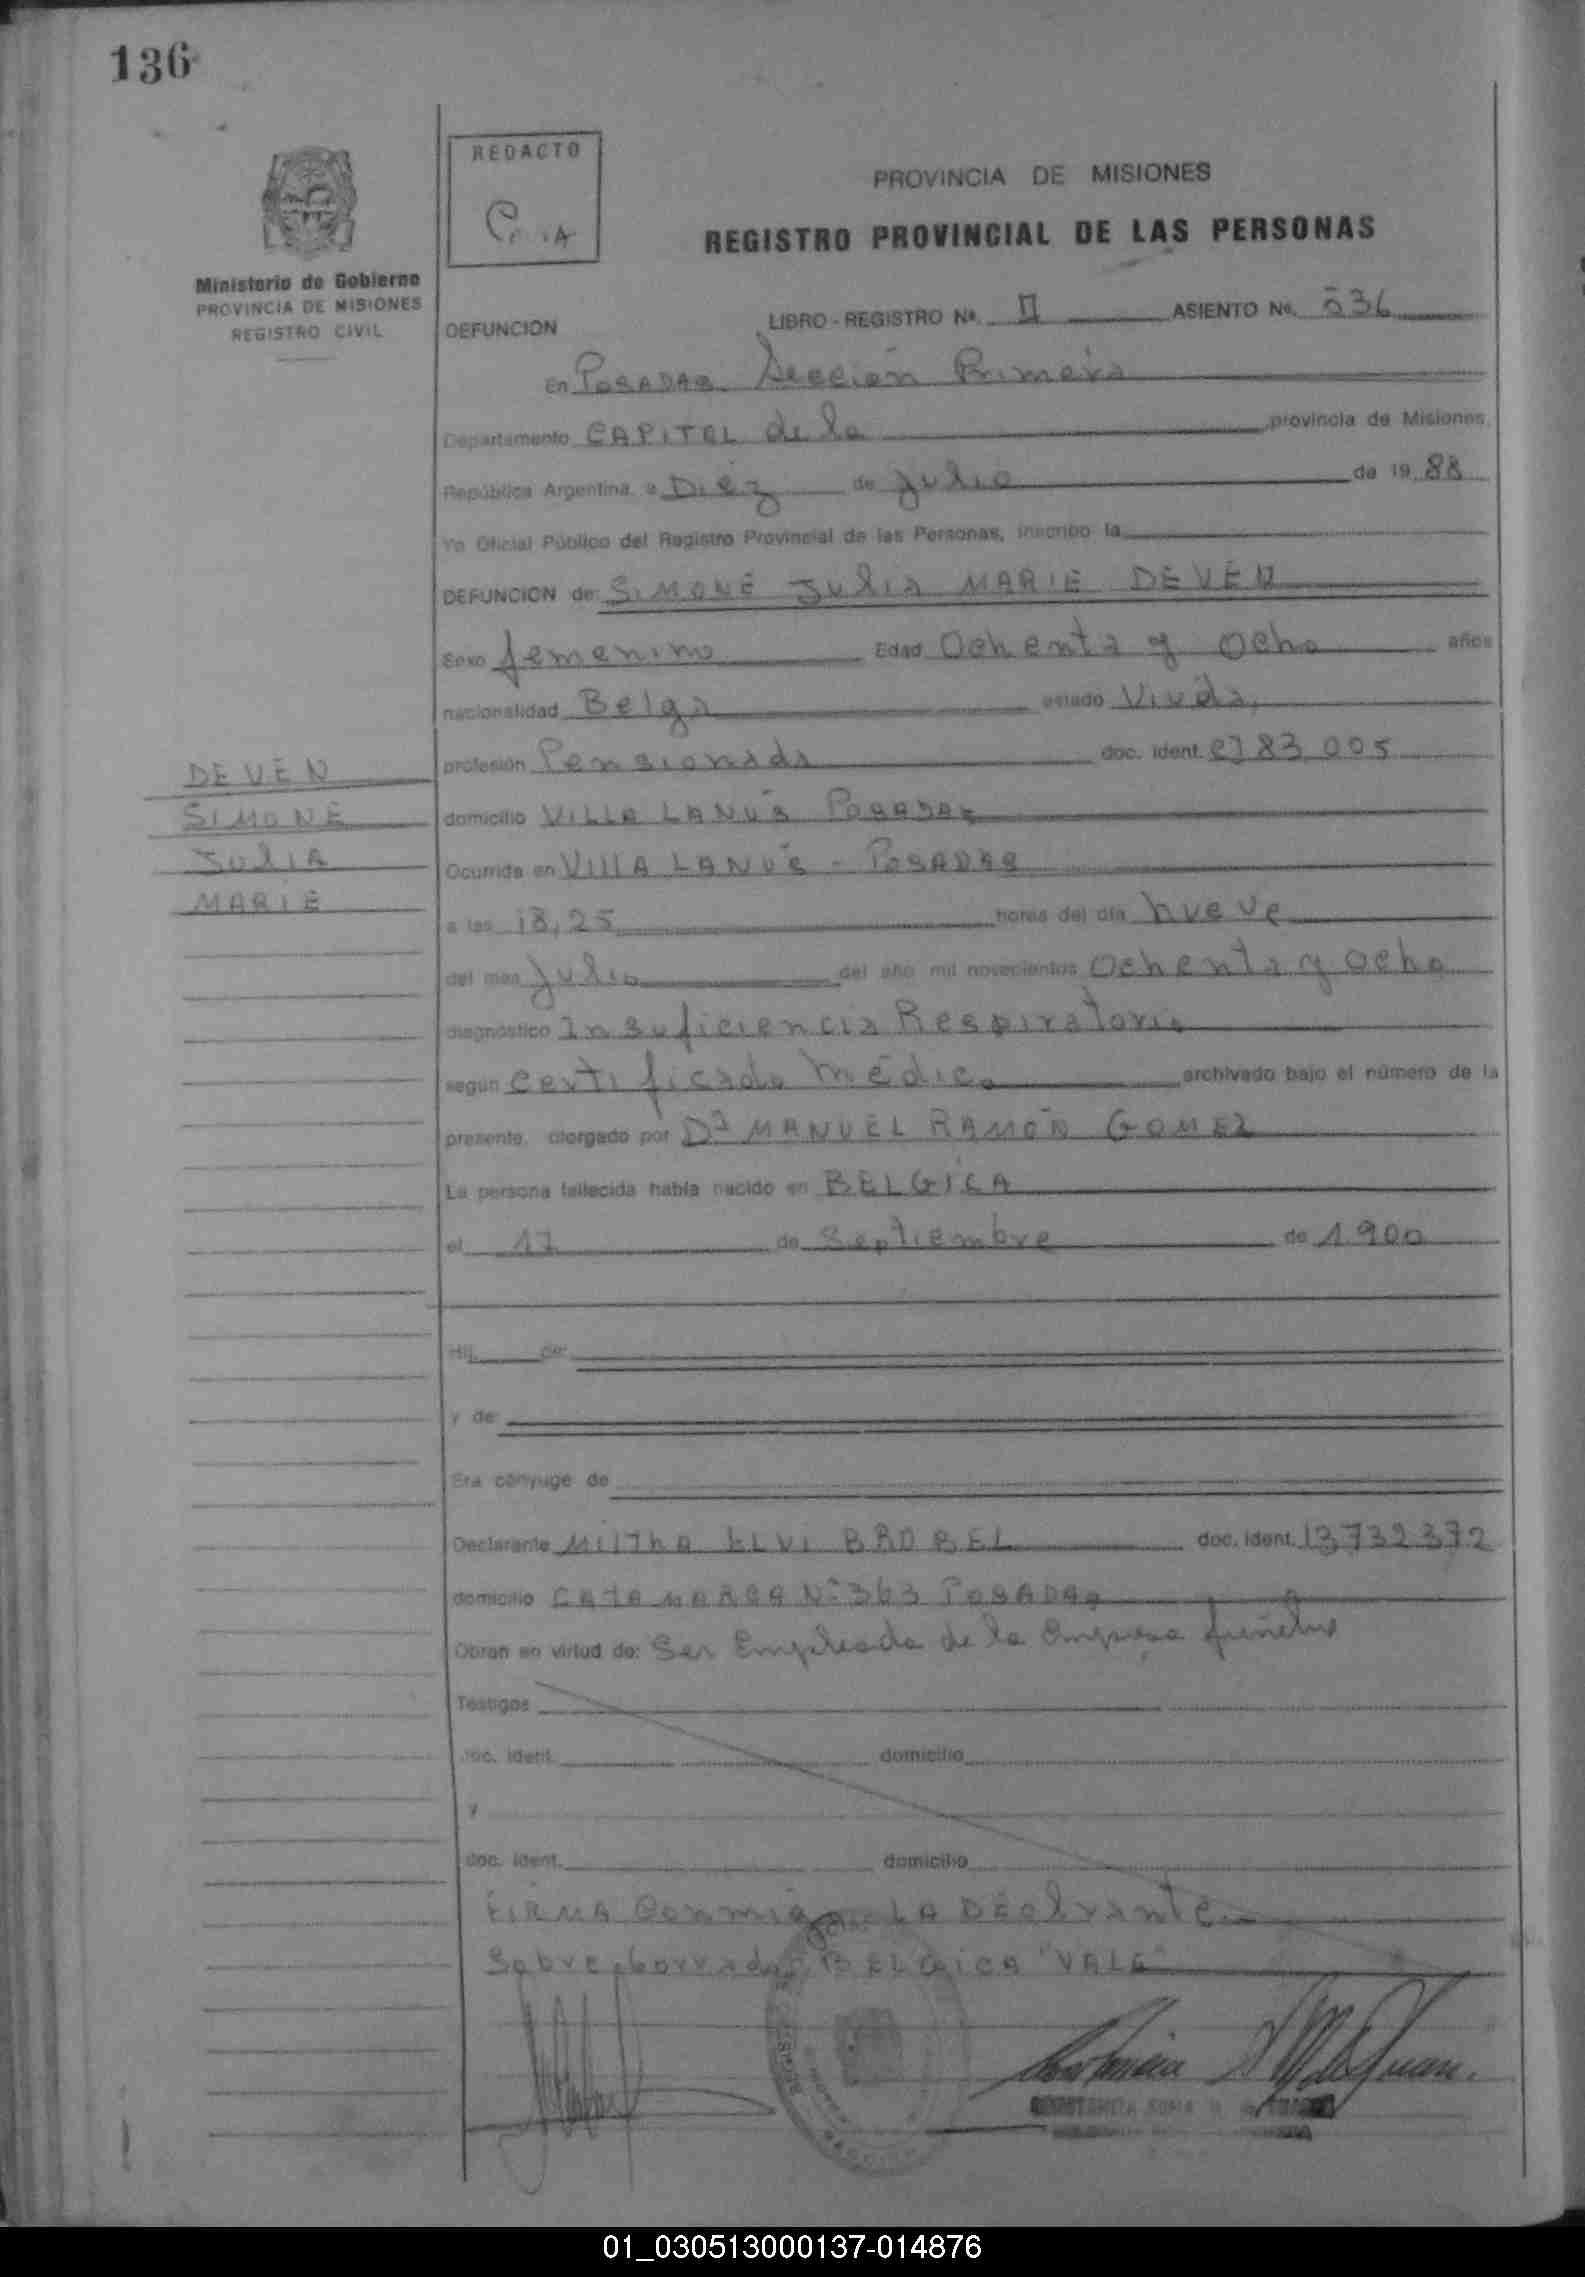 136
REDACTO
PROVINCIA DE MISIONES
REGISTRO PROVINCIAL DE LAS PERSONAS
Ministerio de Gobierno
PROVINCIA DE MISIONES
REGISTRO CIVIL
DEFUNCION LIBRO - REGISTRO Nº. II ASIENTO No. 536
En POSADAS Sección Primera
Departamento CAPITAL de la provincia de Misiones,
República Argentina, a Diez de Julio de 19 88
Yo Oficial Público del Registro Provincial de las Personas, inscribo la
DEFUNCION de: SIMONE Julia MARIE DEVEN
Sexo femenino Edad Ochenta y Ocho años
nacionalidad Belga estado Viuda,
profesión Pensionada doc. ident. CI 83.005
domicilio VILLA LANUS POSADAS
Ocurrida en VIllA LANUS - POSADAS
a las 18,25 horas del día nueve
del mes Julio del año mil novecientos Ochenta y ocho
diagnóstico Insuficiencia Respiratoria
según certificado Médico archivado bajo el número de la
presente, otorgado por Dr MANUEL RAMON GOMEZ
La persona fallecida había nacido en BELGICA
el 17 de Septiembre de 1.900
Hij de:
y de:
Era cónyuge de
Declarante MIRTHA ELVI BROBEL doc. ident. 13732372
domicilio CATAMARCA Nº 363 POSADAS
Obran en virtud de: Ser Empleada de la Empresa fúnebre
Testigos
doc. ident. domicilio
y
doc. ident. domicilio
FIRMA Conmigo LA DEClarante.-
Sobre borrado: BELGICA "VALE"
DEVEN
SIMONE
JuliA
MARIE
01_030513000137-014876